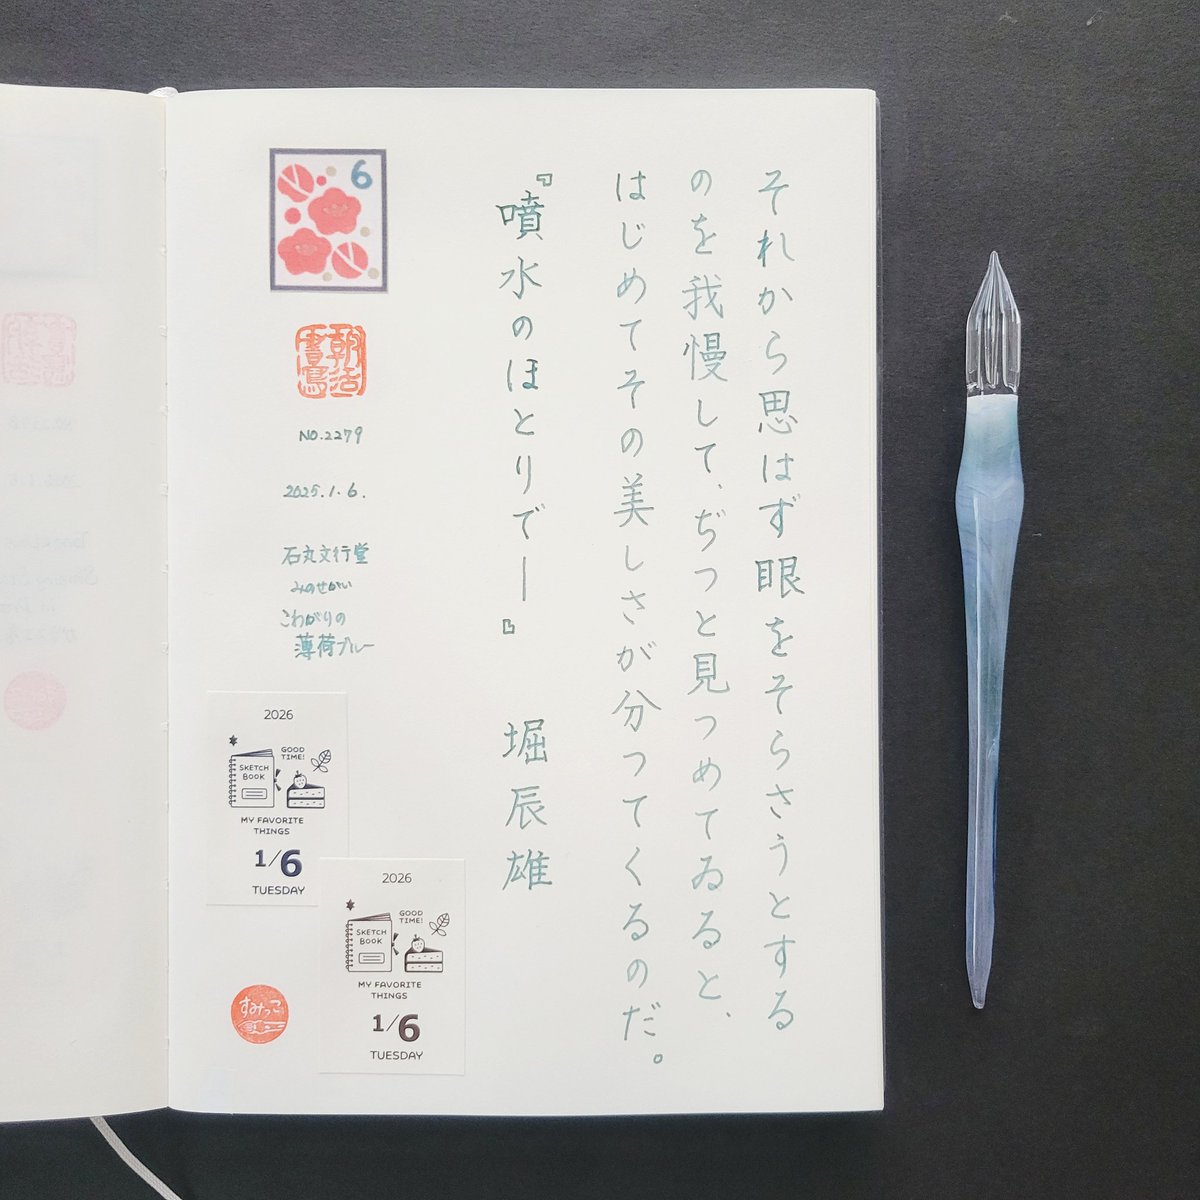 それから思はず眼をそらさうとする
のを我慢して、ぢつと見つめてゐると、
はじめてその美しさが分つてくるのだ。
『噴水のほとりで—』 堀辰雄
6
朝活書写
NO.2279
2025.1.6.
石丸文行堂
みのせかい
こわがりの
薄荷ブルー
2026
GOOD
TIME!
SKETCH
BOOK
MY FAVORITE
THINGS
1/6
TUESDAY
2026
GOOD
TIME!
SKETCH
BOOK
MY FAVORITE
THINGS
1/6
TUESDAY
すみっこ